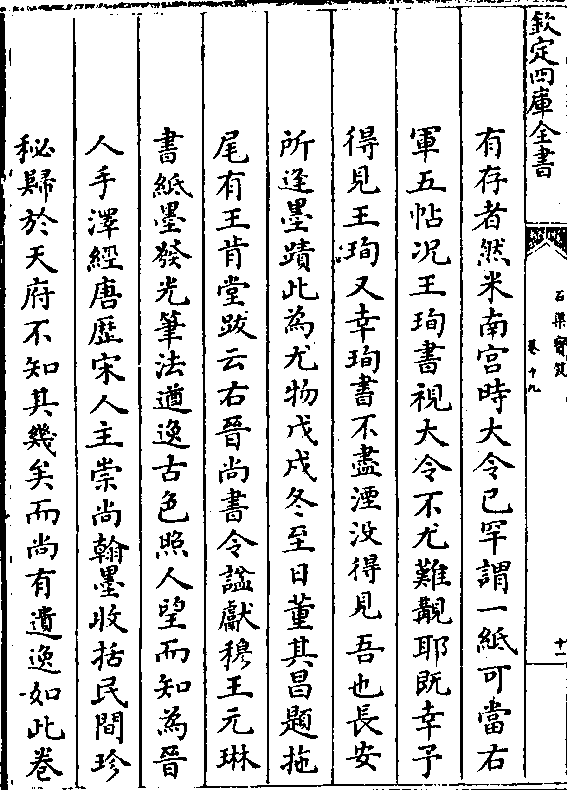 欽定四庫全書
石渠寶笈
卷十九
十
有存者然米南宮時大令已罕謂一紙可當右
軍五帖况王珣書視大令不尤難覩耶既幸予
得見王珣又幸珣書不盡湮没得見吾也長安
所逢墨蹟此為尤物戊戌冬至日董其昌題拖
尾有王肯堂跋云右晉尚書令謚獻穆王元琳
書紙墨發光筆法遒逸古色照人望而知為晉
人手澤經唐歴宋人主崇尚翰墨收括民間珍
秘歸於天府不知其幾矣而尚有遺逸如此卷